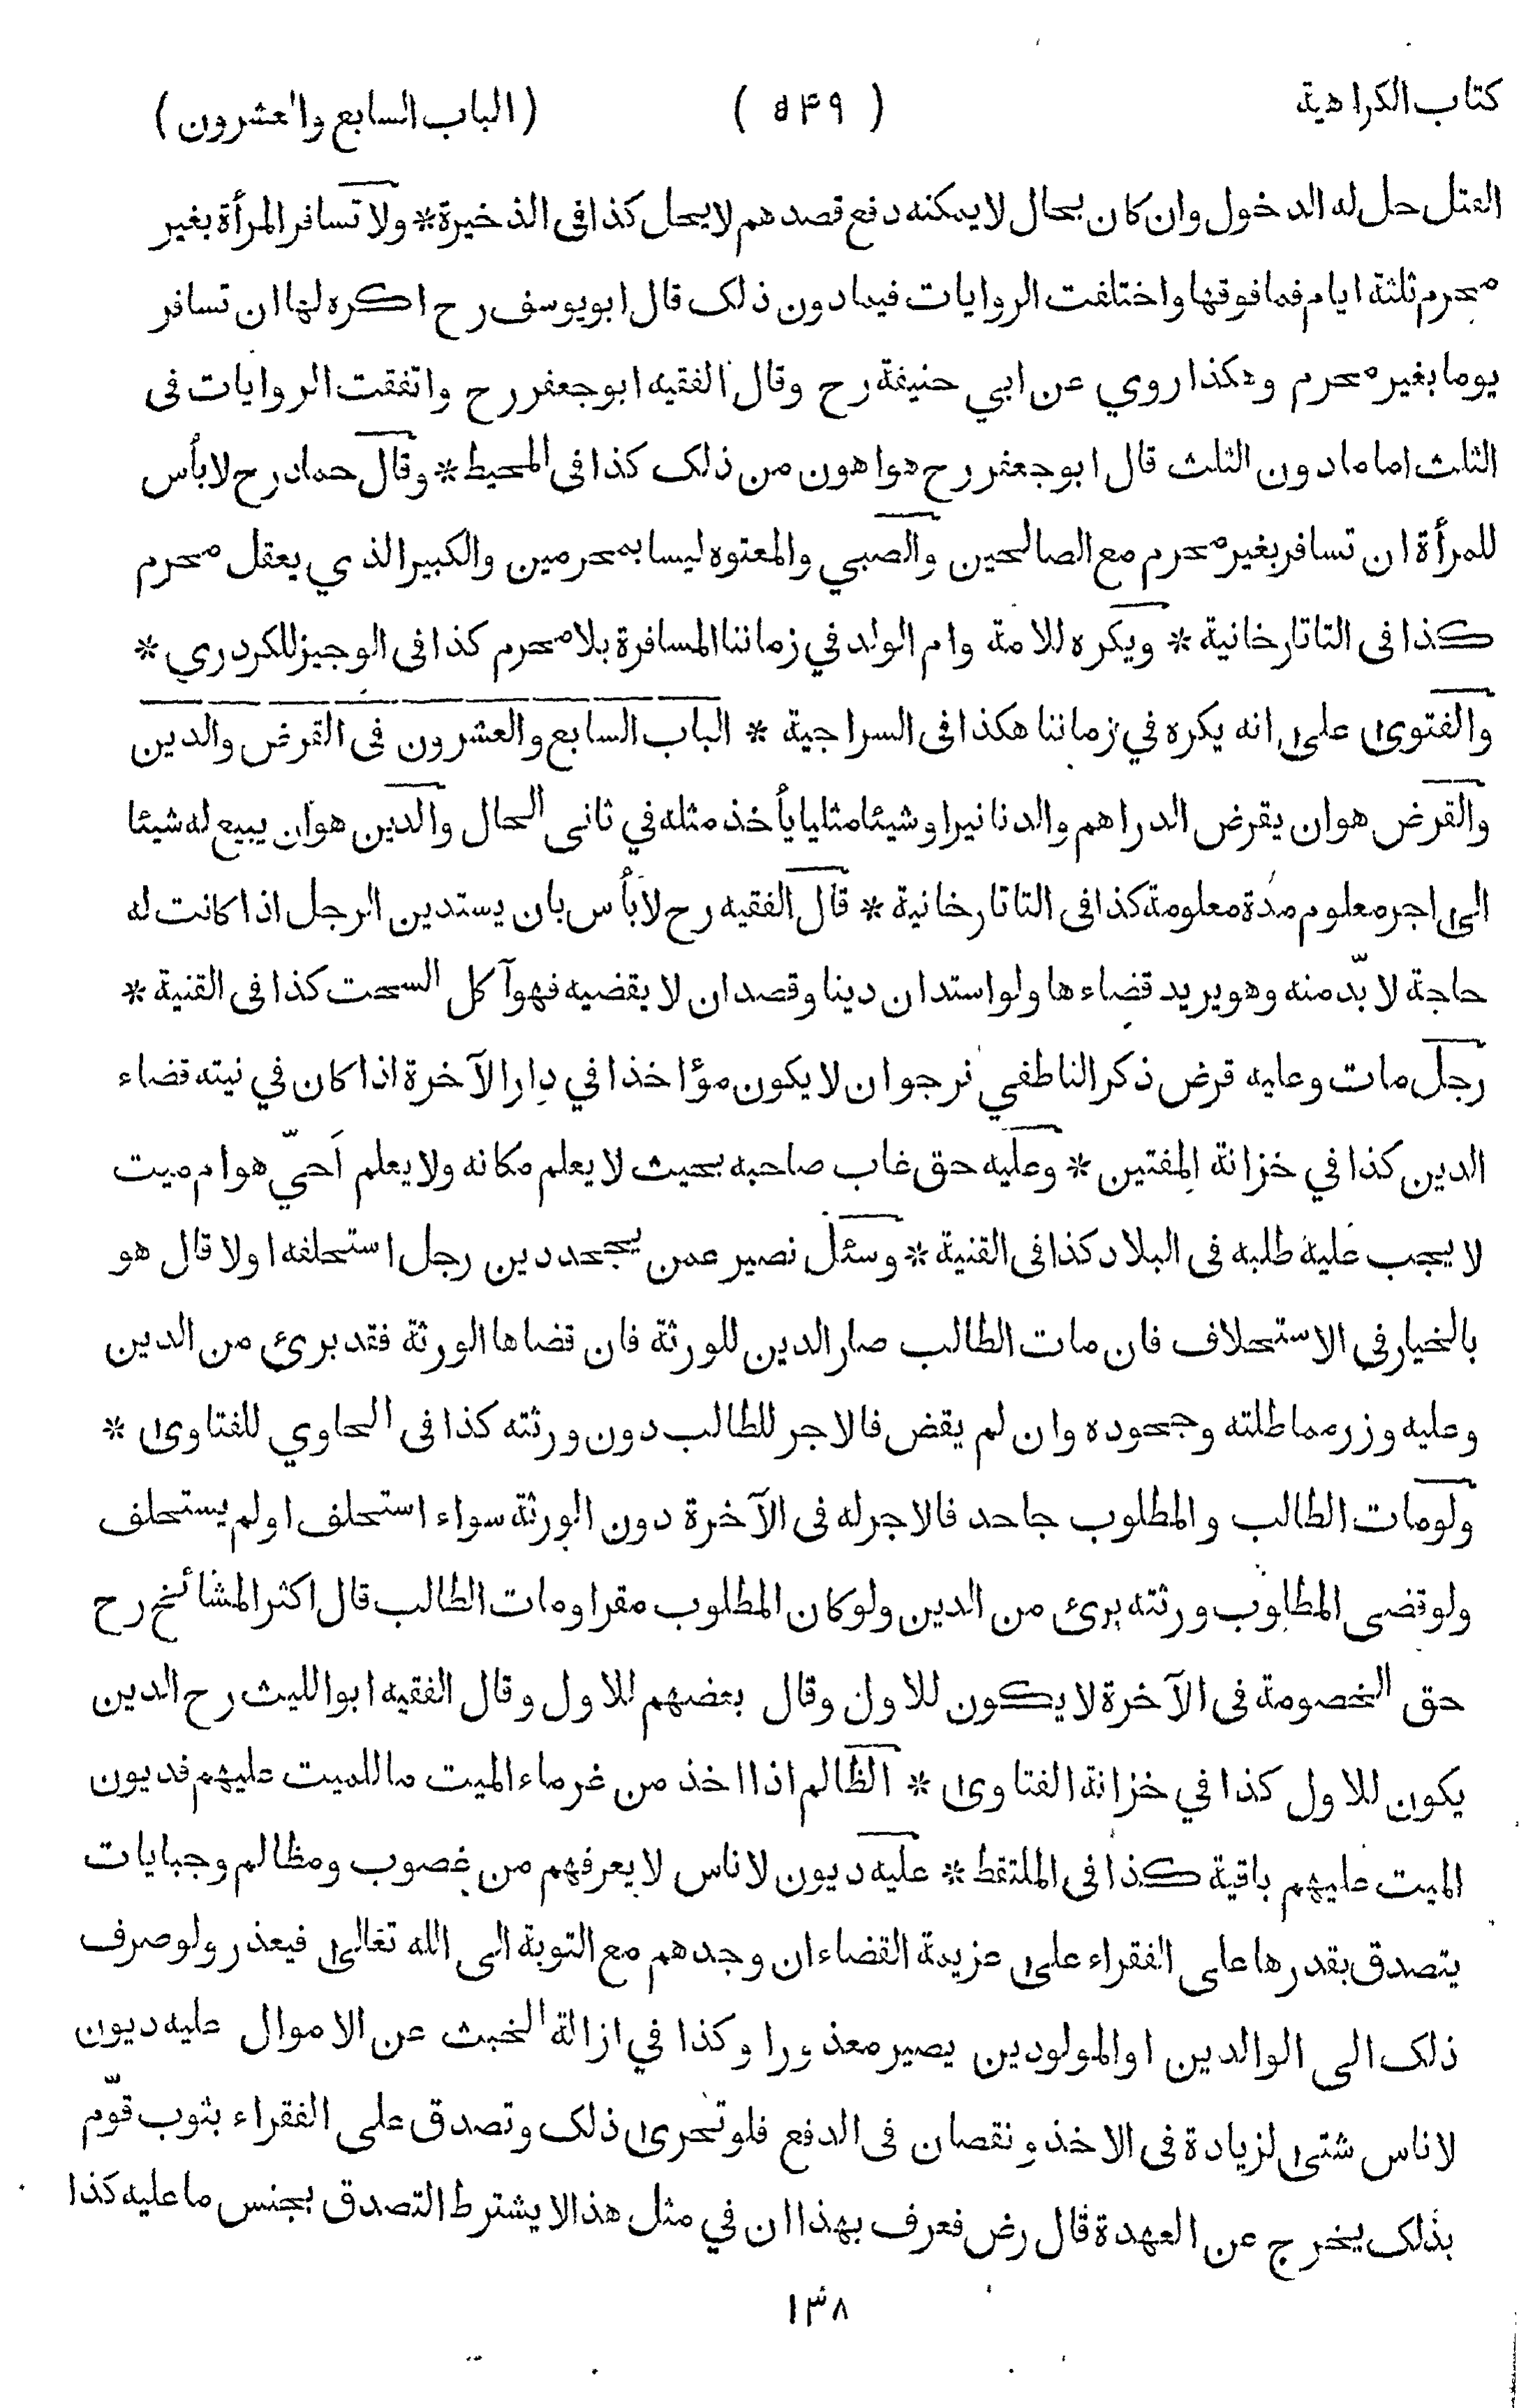 كتاب الكراهية ( ۵۴۹ ) (الباب السابع والعشرون)
القتل حل له الدخول وان كان بحال لا يمكنه دفع قصدهم لا يحل كذا فى الذخيرة * ولا تسافر المرأة بغير
محرم ثلثة ايام فما فوقها واختلفت الروايات فيما دون ذلك قال ابو يوسف رح اكره لها ان تسافر
يوما بغير محرم وهكذا روي عن ابي حنيفة رح وقال الفقيه ابو جعفر رح واتفقت الروايات فى
الثلث اما ما دون الثلث قال ابو جعفر رح هو اهون من ذلك كذا فى المحيط * وقال حماد رح لا بأس
للمرأة ان تسافر بغير محرم مع الصالحين والصبي والمعتوه ليسا بمحرمين والكبير الذي يعقل محرم
كذا فى التاتارخانية * ويكره للامة وام الولد في زماننا المسافرة بلا محرم كذا فى الوجيز للكردري *
والفتوى على انه يكره في زماننا هكذا فى السراجية * الباب السابع والعشرون فى القرض والدين
والقرض هو ان يقرض الدراهم والدنانير او شيئا مثليا يأخذ مثله في ثانى الحال والدين هو ان يبيع له شيئا
الى اجر معلوم مدة معلومة كذا فى التاتارخانية * قال الفقيه رح لا بأس بان يستدين الرجل اذا كانت له
حاجة لا بدّ منه وهو يريد قضاءها ولو استدان دينا وقصد ان لا يقضيه فهو آكل السحت كذا فى القنية *
رجل مات وعليه قرض ذكر الناطفي نرجو ان لا يكون مؤاخذا في دار الآخرة اذا كان في نيته قضاء
الدين كذا في خزانة المفتين * وعليه حق غاب صاحبه بحيث لا يعلم مكانه ولا يعلم اَحىّ هو ام ميت
لا يجب عليه طلبه فى البلاد كذا فى القنية * وسئل نصير عمن يجحد دين رجل استحلفه اولا قال هو
بالخيار فى الاستحلاف فان مات الطالب صار الدين للورثة فان قضاها الورثة فقد برئ من الدين
وعليه وزر مماطلته وجحوده وان لم يقض فالاجر للطالب دون ورثته كذا فى الحاوي للفتاوى *
ولو مات الطالب والمطلوب جاحد فالاجر له فى الآخرة دون الورثة سواء استحلف او لم يستحلف
ولو قضى المطلوب ورثته برئ من الدين ولو كان المطلوب مقرا ومات الطالب قال اكثر المشائخ رح
حق الخصومة فى الآخرة لا يكون للاول وقال بعضهم للاول وقال الفقيه ابو الليث رح الدين
يكون للاول كذا في خزانة الفتاوى * الظالم اذا اخذ من غرماء الميت ما للميت عليهم فديون
الميت عليهم باقية كذا فى الملتقط * عليه ديون لاناس لا يعرفهم من غصوب ومظالم وجبايات
يتصدق بقدرها على الفقراء على عزيمة القضاء ان وجدهم مع التوبة الى الله تعالى فيعذر ولو صرف
ذلك الى الوالدين او المولودين يصير معذورا وكذا في ازالة الخبث عن الاموال عليه ديون
لاناس شتى لزيادة فى الاخذ ونقصان فى الدفع فلو تحرى ذلك وتصدق على الفقراء بثوب قوّم
بذلك يخرج عن العهدة قال رض فعرف بهذا ان في مثل هذا لا يشترط التصدق بجنس ما عليه كذا
۱۳۸